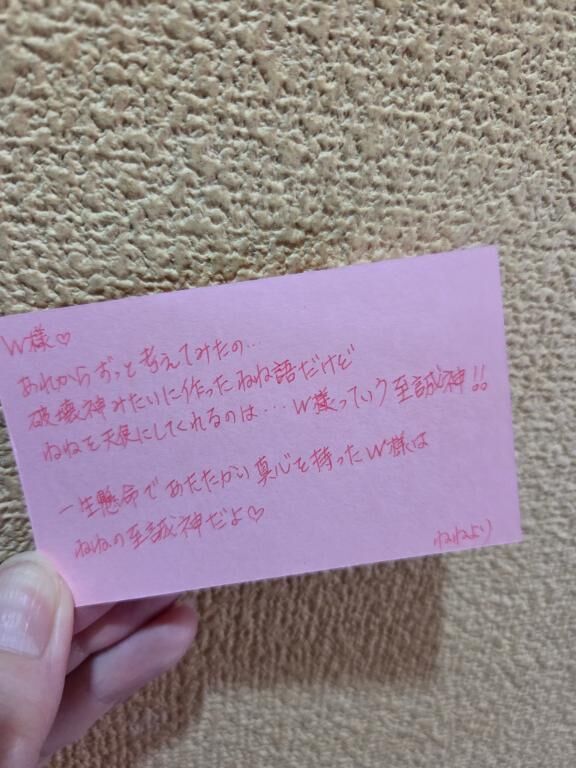 W様♡
あれからずっと考えてみたの…
破壊神みたいに作ったねね語だけど
ねねを天使にしてくれるのは…W様っていう至誠神!!
一生懸命であたたかい真心を持ったW様は
ねねの至誠神だよ♡
ねねより